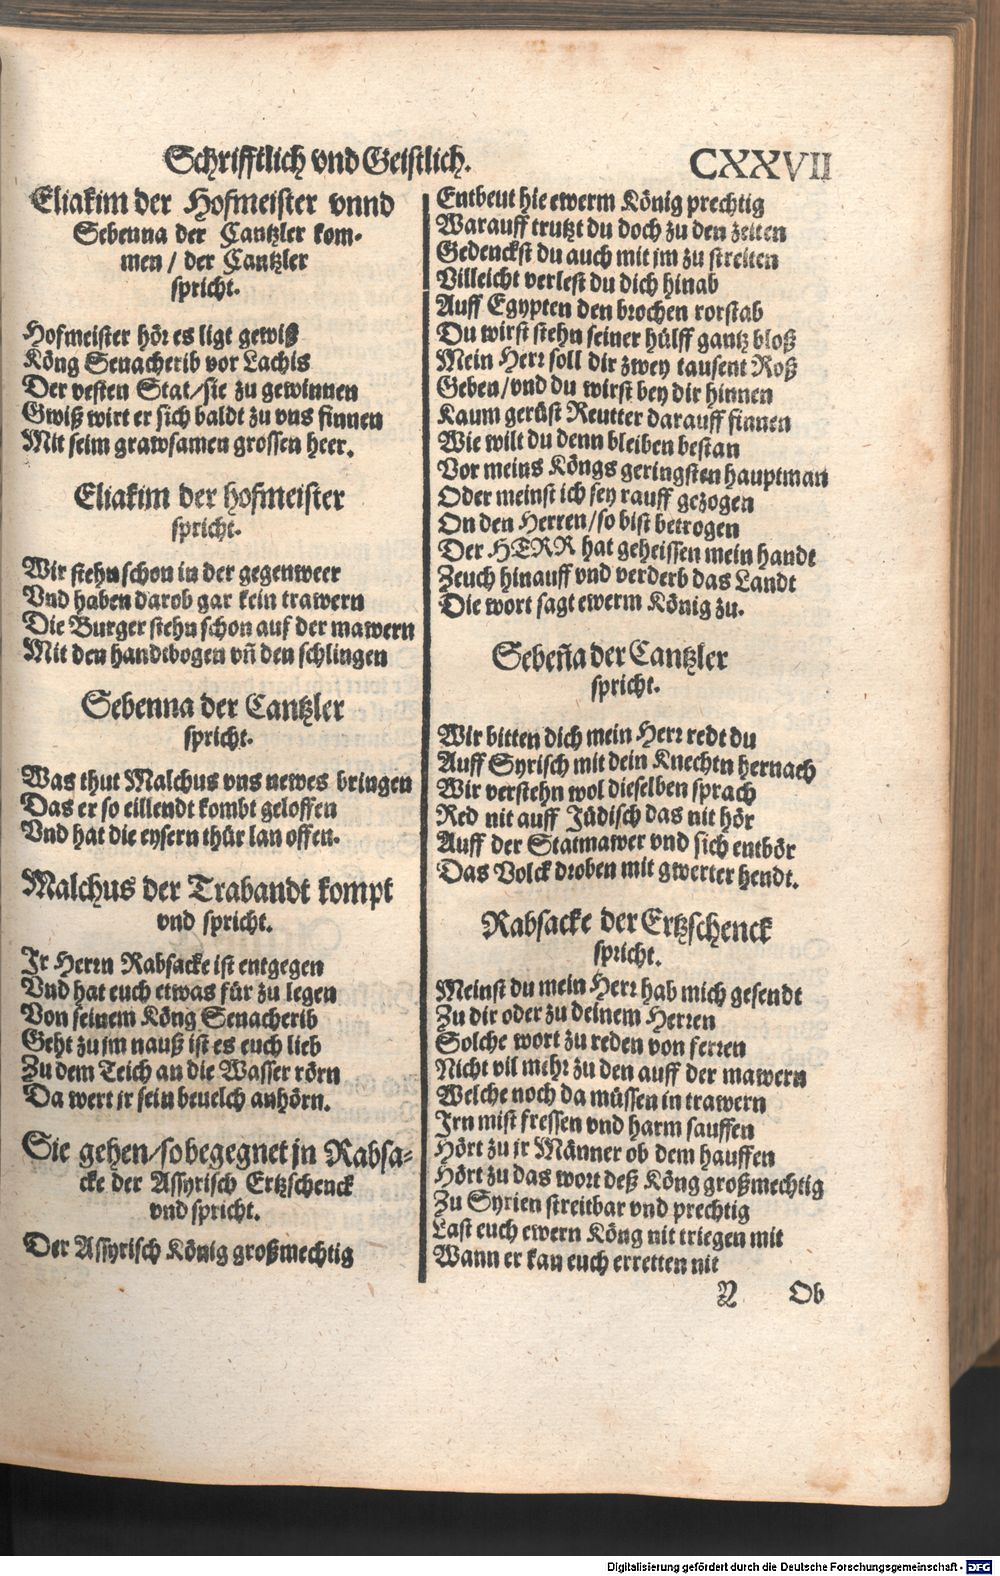 Schrifftlich vnd Geistlich. CXXVII
Eliakim der Hofmeister vnnd
Sebenna der Cantzler kom-
men / der Cantzler
spricht.
Hofmeister hör es ligt gewiß
Köng Senacherib vor Lachis
Der vesten Stat/sie zu gewinnen
Gwiß wirt er sich baldt zu vns finnen
Mit seim grawsamen grossen heer.
Eliakim der hofmeister
spricht.
Wir stehn schon in der gegenweer
Vnd haben darob gar kein trawern
Die Burger stehn schon auf der mawern
Mit den handtbogen vñ den schlingen
Sebenna der Cantzler
spricht.
Was thut Malchus vns newes bringen
Das er so eillendt kombt geloffen
Vnd hat die eysern thür lan offen.
Malchus der Trabandt kompt
vnd spricht.
Jr Herrn Rabsacke ist entgegen
Vnd hat euch etwas für zu legen
Von seinem Köng Senacherib
Geht zu im nauß ist es euch lieb
Zu dem Teich an die Wasser rörn
Da wert ir sein beuelch anhörn.
Sie gehen/so begegnet jn Rabsa-
cke der Assyrisch Ertzschenck
vnd spricht.
Der Assyrisch König großmechtig
Entbeut hie ewerm König prechtig
Warauff trutzt du doch zu den zeiten
Gedenckst du auch mit im zu streiten
Villeicht verlest du dich hinab
Auff Egypten den brochen rorstab
Du wirst stehn seiner hülff gantz bloß
Mein Herr soll dir zwey tausent Roß
Geben/vnd du wirst bey dir hinnen
Kaum gerüst Reutter darauff finnen
Wie wilt du denn bleiben bestan
Vor meins Köngs geringsten hauptman
Oder meinst ich sey rauff gezogen
On den Herren/so bist betrogen
Der HERR hat geheissen mein handt
Zeuch hinauff vnd verderb das Landt
Die wort sagt ewerm König zu.
Sebeña der Cantzler
spricht.
Wir bitten dich mein Herr redt du
Auff Syrisch mit dein Knechtn hernach
Wir verstehn wol dieselben sprach
Red nit auff Jüdisch das nit hör
Auff der Statmawer vnd sich entbör
Das Volck droben mit gwerter hendt.
Rabsacke der Ertzschenck
spricht.
Meinst du mein Herr hab mich gesendt
Zu dir oder zu deinem Herren
Solche wort zu reden von ferren
Nicht vil mehr zu den auff der mawern
Welche noch da müssen in trawern
Jrn mist fressen vnd harm sauffen
Hört zu ir Männer ob dem hauffen
Hört zu das wort deß Köng großmechtig
Zu Syrien streitbar vnd prechtig
Last euch ewern Köng nit triegen mit
Wann er kan euch erretten nit
Y Ob
Digitalisierung gefördert durch die Deutsche Forschungsgemeinschaft - DFG